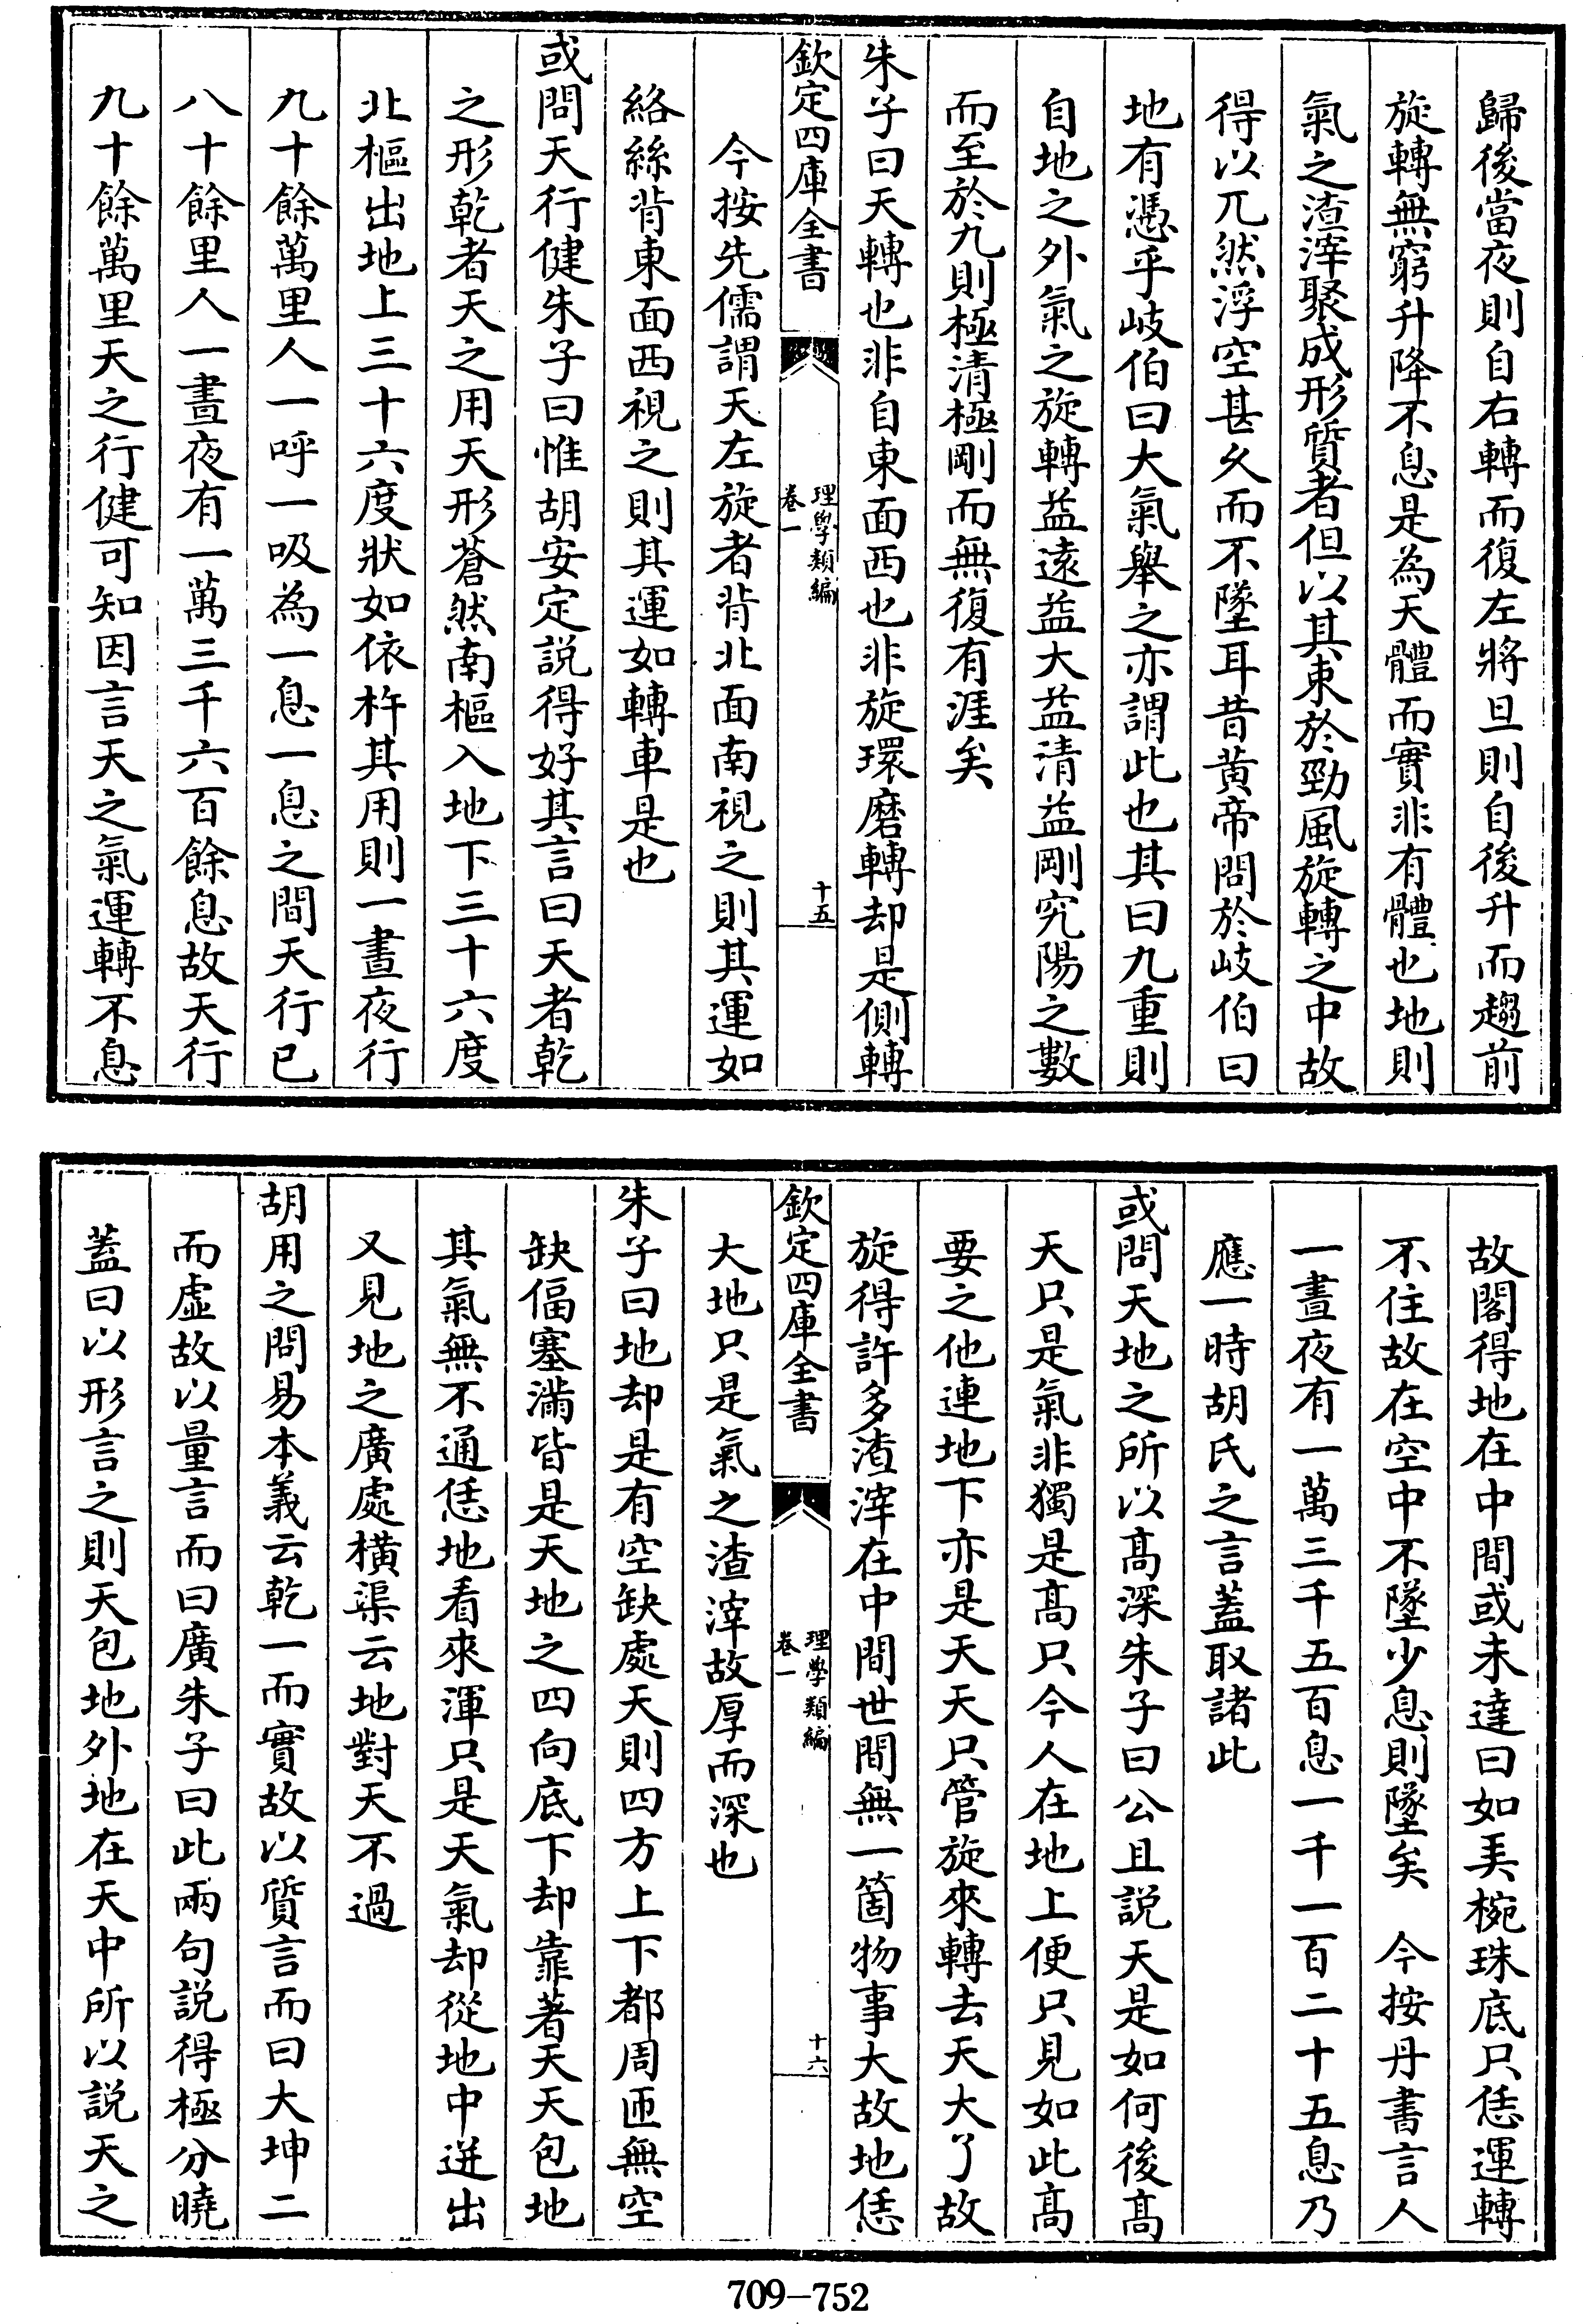 歸後當夜則自右轉而復左將旦則自後升而趨前
旋轉無窮升降不息是為天體而實非有體也地則
氣之渣滓聚成形質者但以其束於勁風旋轉之中故
得以兀然浮空甚久而不墜耳昔黄帝問於岐伯曰
地有憑乎岐伯曰大氣舉之亦謂此也其曰九重則
自地之外氣之旋轉益遠益大益清益剛究陽之數
而至於九則極清極剛而無復有涯矣
朱子曰天轉也非自東面西也非旋環磨轉却是側轉
欽定四庫全書
理學類編
卷一
十五
今按先儒謂天左旋者背北面南視之則其運如
絡絲背東面西視之則其運如轉車是也
或問天行健朱子曰惟胡安定説得好其言曰天者乾
之形乾者天之用天形蒼然南樞入地下三十六度
北樞出地上三十六度狀如依杵其用則一晝夜行
九十餘萬里人一呼一吸為一息一息之間天行已
八十餘里人一晝夜有一萬三千六百餘息故天行
九十餘萬里天之行健可知因言天之氣運轉不息
故閣得地在中間或未達曰如弄椀珠底只恁運轉
不住故在空中不墜少息則墜矣　今按丹書言人
一晝夜有一萬三千五百息一千一百二十五息乃
應一時胡氏之言蓋取諸此
或問天地之所以髙深朱子曰公且説天是如何後髙
天只是氣非獨是髙只今人在地上便只見如此髙
要之他連地下亦是天天只管旋來轉去天大了故
旋得許多渣滓在中間世間無一箇物事大故地恁
欽定四庫全書
理學類編
卷一
十六
大地只是氣之渣滓故厚而深也
朱子曰地却是有空缺處天則四方上下都周匝無空
缺偪塞滿皆是天地之四向底下却靠著天天包地
其氣無不通恁地看來渾只是天氣却從地中迸出
又見地之廣處横渠云地對天不過
胡用之問易本義云乾一而實故以質言而曰大坤二
而虛故以量言而曰廣朱子曰此兩句説得極分曉
蓋曰以形言之則天包地外地在天中所以説天之
709—752